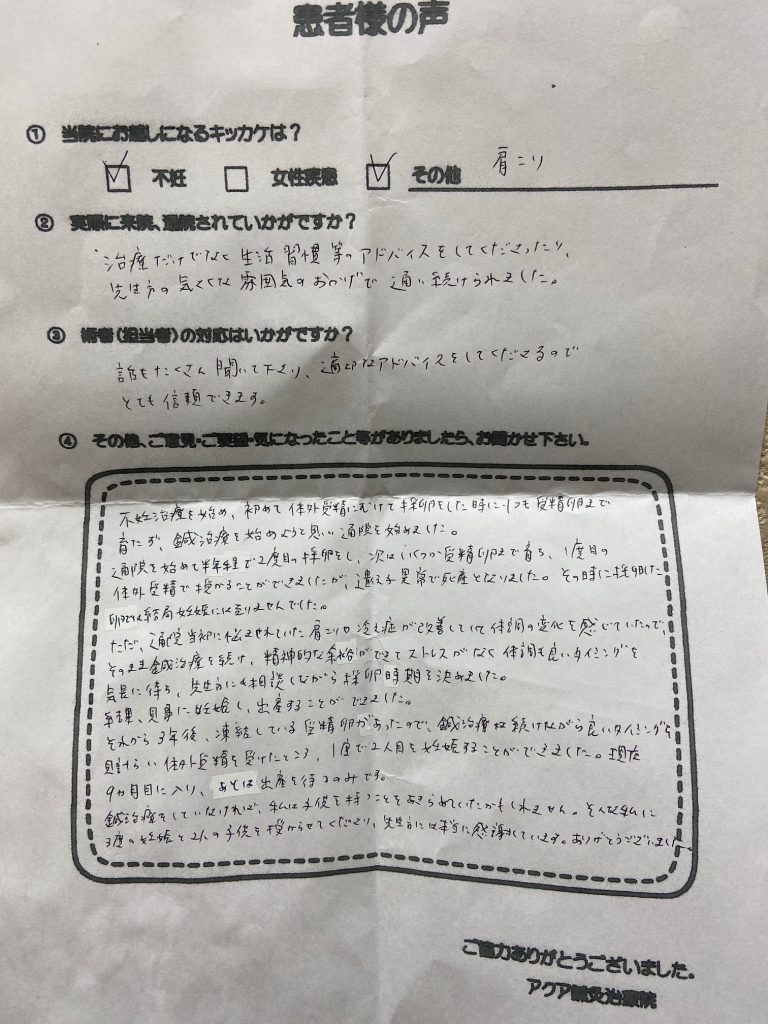 患者様の声
① 当院にお越しになるキッカケは？
不妊 女性疾患 その他 肩こり
② 実際に来院、通院されていかがですか？
治療だけでなく生活習慣等のアドバイスをしてくださったり、
先生方の気さくな雰囲気のおかげで通い続けられました。
③ 術者（担当者）の対応はいかがですか？
話をたくさん聞いて下さり、適切なアドバイスをしてくださるので
とても信頼できます。
④ その他、ご意見・ご要望・気になったこと等がありましたら、お聞かせ下さい。
不妊治療を始め、初めて体外受精にむけて採卵をした時に1つも受精卵まで
育たず、鍼治療を始めようと思い通院を始めました。
通院を始めて半年程で2度目の採卵をし、次はいくつか受精卵まで育ち、1度目の
体外受精で授かることができましたが、遺伝子異常で死産となりました。その時に採卵した
卵では結局妊娠には至りませんでした。
ただ、通院当初に悩まされていた肩こりや冷え症が改善していて体調の変化を感じていたので、
そのまま鍼治療を続け、精神的な余裕ができてストレスがなく体調も良いタイミングを
気長に待ち、先生方にも相談しながら採卵時期を決めました。
結果、見事に妊娠し、出産することができました。
それから3年後、凍結している受精卵があったので、鍼治療は続けながら良いタイミングを
見計らい体外受精を受けたところ、1度で2人目を妊娠することができました。現在
9ヵ月目に入り、あとは出産を待つのみです。
鍼治療をしていなければ、私は子供を持つことをあきらめていたかもしれません。そんな私に
3度の妊娠と2人の子供を授からせてくださり、先生方には本当に感謝しています。ありがとうございました。
ご協力ありがとうございました。
アクア鍼灸治療院